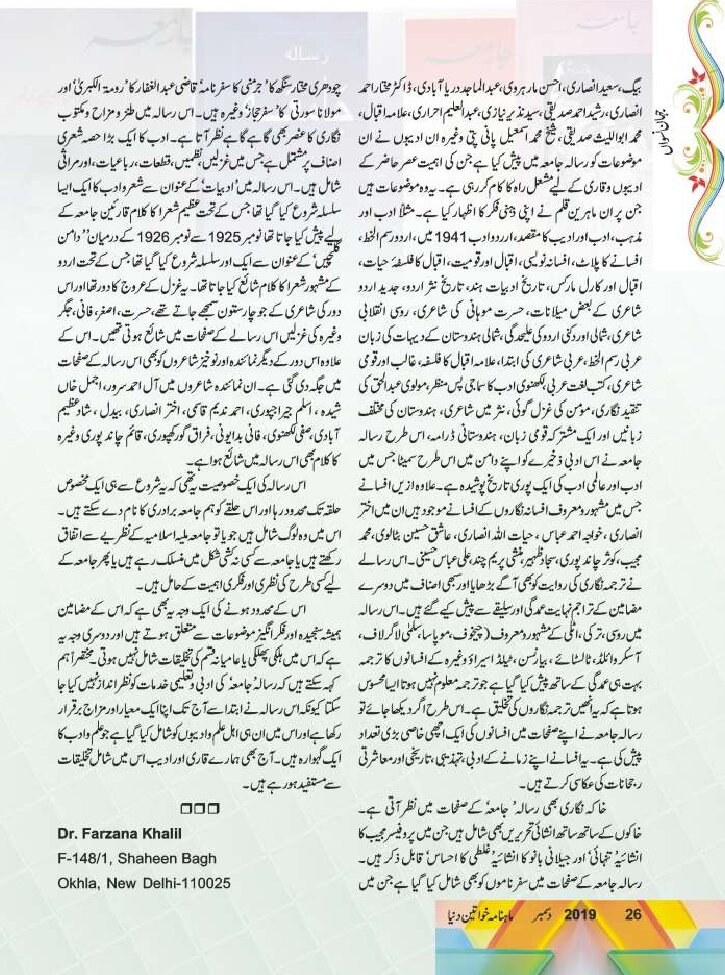 جہان نسواں
بیگ، سعید انصاری، احسن مارہروی، عبدالماجد دریا آبادی، ڈاکٹر مختار احمد
انصاری، رشید احمد صدیقی، سید نذیر نیازی، عبدالعلیم احراری، علامہ اقبال،
محمد ابواللیث صدیقی، شیخ محمد اسمٰعیل پانی پتی وغیرہ ان ادیبوں نے ان
موضوعات کو رسالہ جامعہ میں پیش کیا ہے جن کی اہمیت عصر حاضر کے
ادیبوں و قاری کے لیے مشعل راہ کا کام کر رہی ہے۔ یہ وہ موضوعات ہیں
جن پر ان ماہرین قلم نے اپنی ذہنی فکر کا اظہار کیا ہے۔ مثلاً ادب اور
مذہب، ادب اور ادیب کا مقصد، اردو ادب 1941 میں، اردو رسم الخط،
افسانے کا پلاٹ، افسانہ نویسی، اقبال اور قومیت، اقبال کا فلسفۂ حیات،
اقبال اور کارل مارکس، تاریخ ادبیات ہند، تاریخ نثر اردو، جدید اردو
شاعری کے بعض میلانات، حسرت موہانی کی شاعری، روسی انقلابی
شاعری، شمالی اور دکنی اردو کی علیحدگی، شمالی ہندوستان کے دیہات کی زبان
عربی رسم الخط، عربی شاعری کی ابتدا، علامہ اقبال کا فلسفہ، غالب اور قومی
شاعری، کتب لغت عربی، لکھنوی ادب کا سماجی پس منظر، مولوی عبدالحق کی
تنقید نگاری، مؤمن کی غزل گوئی، نثر میں شاعری، ہندوستان کی مختلف
زبانیں اور ایک مشترکہ قومی زبان، ہندوستانی ڈرامہ، اس طرح رسالہ
جامعہ نے اس ادبی ذخیرے کو اپنے دامن میں اس طرح سمیٹا جس میں
ادب اور عالمی ادب کی ایک پوری تاریخ پوشیدہ ہے۔ علاوہ ازیں افسانے
جس میں مشہور و معروف افسانہ نگاروں کے افسانے موجود ہیں ان میں اختر
انصاری، خواجہ احمد عباس، حیات اللہ انصاری، عاشق حسین بٹالوی، محمد
مجیب، کوثر چاند پوری، سجاد ظہیر، منشی پریم چند، علی عباس حسینی۔ اس رسالے
نے ترجمہ نگاری کی روایت کو بھی آگے بڑھایا اور سبھی اصناف میں دوسرے
مضامین کے تراجم نہایت عمدگی اور سلیقے سے پیش کیے گئے ہیں۔ اس رسالہ
میں روسی، ترکی، اٹلی کے مشہور و معروف (چیخوف، موپاسا، سلمٰی لاگرلاف،
آسکر وائلڈ، ٹالسٹائے، بیارٹسن، ٹیلڈا اسیراؤ وغیرہ کے افسانوں کا ترجمہ
بہت ہی عمدگی کے ساتھ پیش کیا گیا ہے جو ترجمہ معلوم نہیں ہوتا ایسا محسوس
ہوتا ہے کہ یہ انھیں ترجمہ نگاروں کی تخلیق ہے۔ اس طرح اگر دیکھا جائے تو
رسالہ جامعہ نے اپنے صفحات میں افسانوں کی ایک اچھی خاصی بڑی تعداد
پیش کی ہے۔ یہ افسانے اپنے زمانے کے ادبی، تہذیبی، تاریخی اور معاشرتی
رجحانات کی عکاسی کرتے ہیں۔
خاکہ نگاری بھی رسالہ 'جامعہ' کے صفحات میں نظر آتی ہے۔
خاکوں کے ساتھ ساتھ انشائی تحریریں بھی شامل ہیں جن میں پروفیسر مجیب کا
انشائیہ 'تنہائی' اور جیلانی بانو کا انشائیہ 'غلطی کا احساس' قابل ذکر ہیں۔
رسالہ جامعہ کے صفحات میں سفرناموں کو بھی شامل کیا گیا ہے جن میں
چودھری مختار سنگھ کا 'جرمنی کا سفرنامہ' قاضی عبدالغفار کا 'رومۃ الکبریٰ' اور
مولانا سورتی کا 'سفر حجاز' وغیرہ ہیں۔ اس رسالہ میں طنز و مزاح و مکتوب
نگاری کا عنصر بھی گاہے گاہے نظر آتا ہے۔ ادب کا ایک بڑا حصہ شعری
اصناف پر مشتمل ہے جس میں غزلیں، نظمیں، قطعات، رباعیات، اور مراثی
شامل ہیں۔ اس رسالہ میں 'ادبیات' کے عنوان سے شعر و ادب کا ایک ایسا
سلسلہ شروع کیا گیا تھا جس کے تحت عظیم شعرا کا کلام قارئین جامعہ کے
لیے پیش کیا جاتا تھا نومبر 1925 سے نومبر 1926 کے درمیان 'دامن
گلچیں' کے عنوان سے ایک اور سلسلہ شروع کیا گیا تھا جس کے تحت اردو
کے مشہور شعرا کا کلام شائع کیا جاتا تھا۔ یہ غزل کے عروج کا دور تھا اور اس
دور کی شاعری کے جو چار ستون سمجھے جاتے تھے، حسرت، اصغر، فانی، جگر
وغیرہ کی غزلیں اس رسالے کے صفحات میں شائع ہوتی تھیں۔ اس کے
علاوہ اس دور کے دیگر نمائندہ اور نوخیز شاعروں کو بھی اس رسالہ کے صفحات
میں جگہ دی گئی ہے۔ ان نمائندہ شاعروں میں آل احمد سرور، اجمل خاں
شیدہ، اسلم جیراجپوری، احمد ندیم قاسمی، اختر انصاری، بیدل، شاد عظیم
آبادی، صفی لکھنوی، فانی بدایونی، فراق گورکھپوری، قائم چاند پوری وغیرہ
کا کلام بھی اس رسالہ میں شائع ہوا ہے۔
اس رسالہ کی ایک خصوصیت یہ تھی کہ یہ شروع سے ہی ایک مخصوص
حلقہ تک محدود رہا اور اس حلقے کو ہم جامعہ برادری کا نام دے سکتے ہیں۔
اس میں وہ لوگ شامل ہیں جو یا تو جامعہ ملیہ اسلامیہ کے نظریے سے اتفاق
رکھتے ہیں یا جامعہ سے کسی نہ کسی شکل میں منسلک رہے ہیں یا پھر جامعہ کے
لیے کسی طرح کی نظری اور فکری اہمیت کے حامل ہیں۔
اس کے محدود ہونے کی ایک وجہ یہ بھی ہے کہ اس کے مضامین
ہمیشہ سنجیدہ اور فکر انگیز موضوعات سے متعلق ہوتے ہیں اور دوسری وجہ یہ
ہے کہ اس میں ہلکی پھلکی یا عامیانہ قسم کی تخلیقات شامل نہیں ہوتی۔ مختصراً ہم
کہہ سکتے ہیں کہ رسالہ 'جامعہ' کی ادبی و تعلیمی خدمات کو نظر انداز نہیں کیا جا
سکتا کیونکہ اس رسالہ نے ابتدا سے آج تک اپنا ایک معیار اور مزاج برقرار
رکھا ہے اور اس میں ان ہی اہل علم و ادیبوں کو شامل کیا گیا ہے جو علم و ادب کا
ایک گہوارہ ہیں۔ آج بھی ہمارے قاری اور ادیب اس میں شامل تخلیقات
سے مستفید ہو رہے ہیں۔
□□□
Dr. Farzana Khalil
F-148/1, Shaheen Bagh
Okhla, New Delhi-110025
ماہنامہ خواتین دنیا دسمبر 2019 26